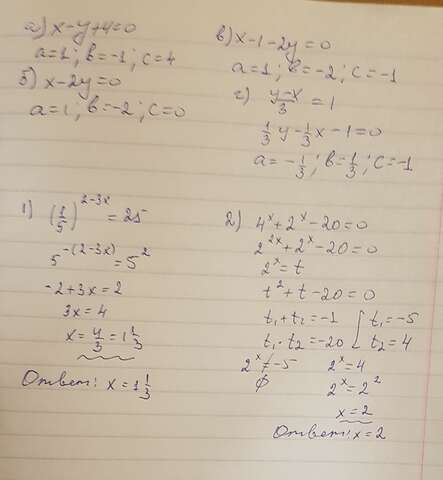 а) x-y+4=0
a=1; b=-1; c=4
б) x-2y=0
a=1; b=-2; c=0
в) x-1-2y=0
a=1; b=-2; c=-1
г) (y-x)/3 = 1
1/3 y - 1/3 x - 1 = 0
a = -1/3; b = 1/3; c = -1
1) (1/5)^(2-3x) = 25
5^(-(2-3x)) = 5^2
-2+3x=2
3x=4
x = 4/3 = 1 1/3
Ответ: x = 1 1/3
2) 4^x + 2^x - 20 = 0
2^(2x) + 2^x - 20 = 0
2^x = t
t^2 + t - 20 = 0
t₁ + t₂ = -1 [ t₁ = -5
t₁ · t₂ = -20 [ t₂ = 4
2^x ≠ -5 2^x = 4
∅ 2^x = 2^2
x = 2
Ответ: x = 2